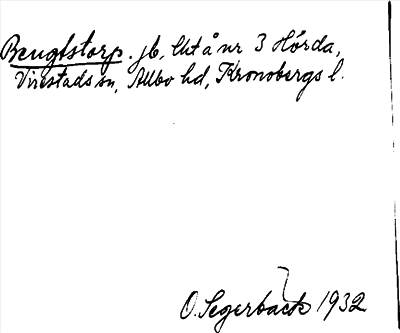 Bengtstorp. jb, Ut å nr 3 Hörda,
Virestads sn, Allbo hd, Kronobergs l.
O. Segerbäck 1932